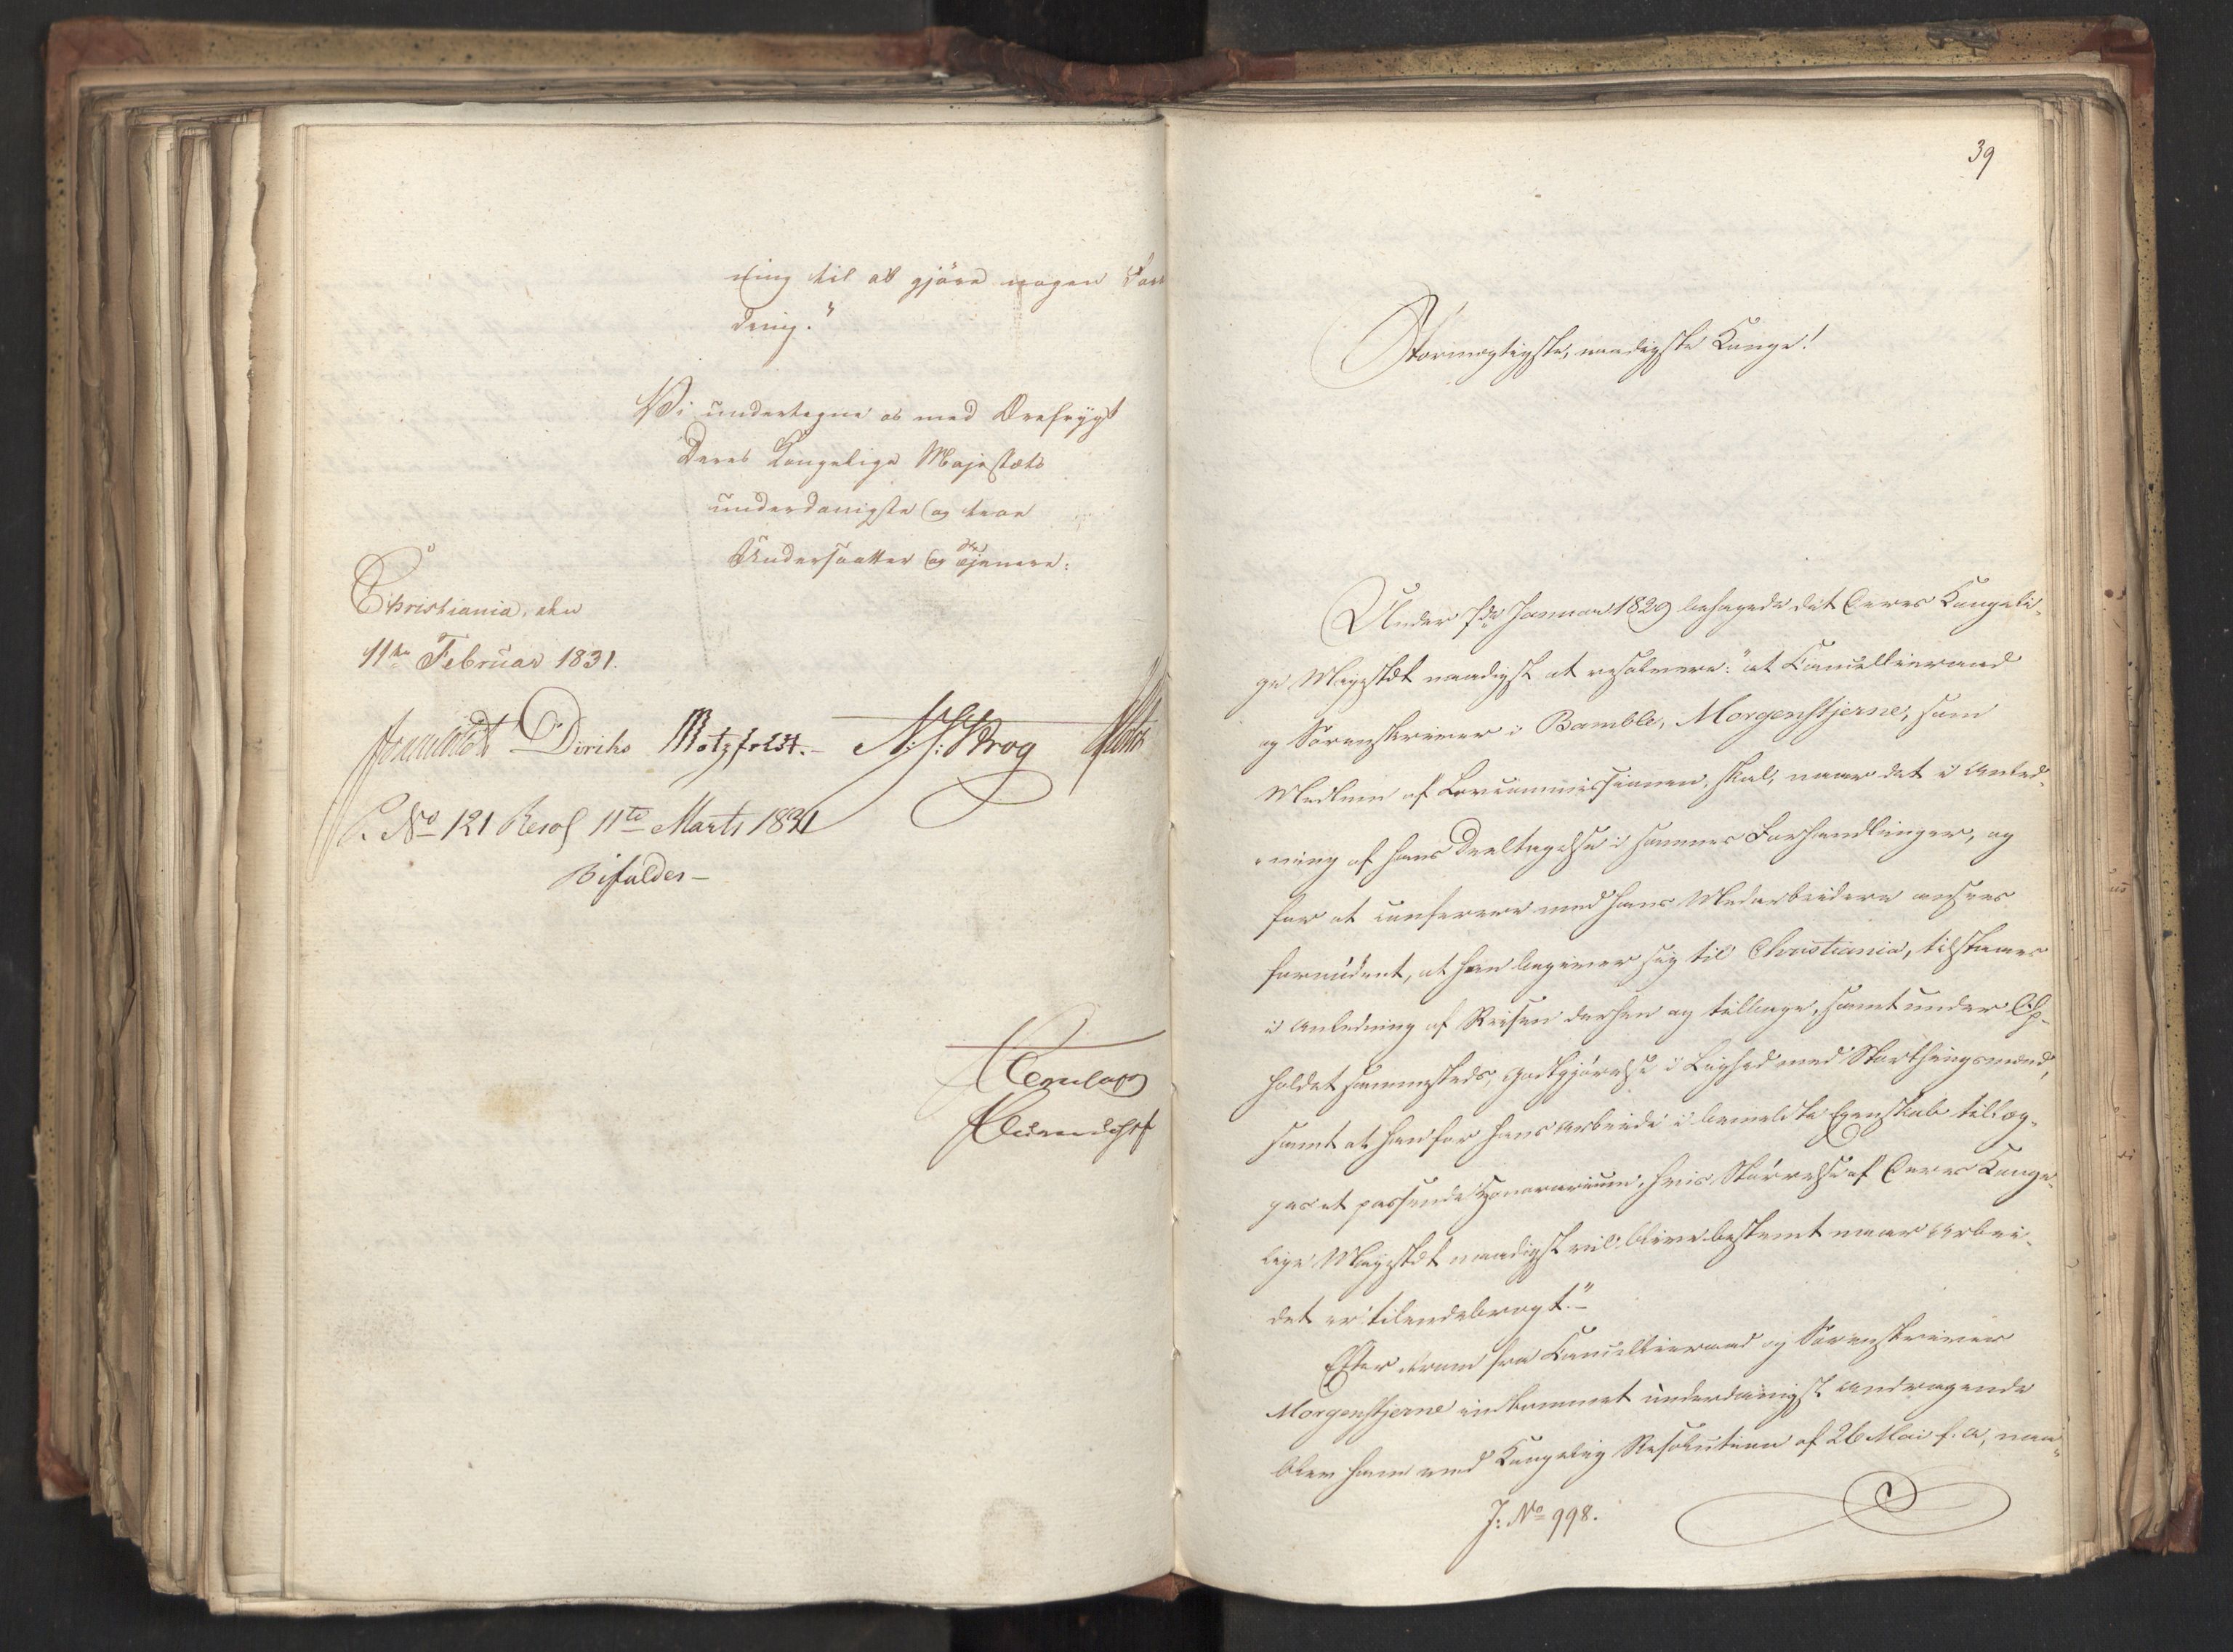 ning til at gjöre nogen
dring."
Vi undertegne os med Ærefrygt
Deres Kongelige Majestæts
underdanigste og troe
Undersaatter og Tjenere:
Christiania, den
11te Februar 1831.
Diriks Motzfeldt. N: J: Krog
P. No 121 Resol 11te Marts 1831
Bifaldes—
39
Stormægtigste, naadigste Konge!
Under 7de Januar 1829 behagede det Deres Kongeli-
ge Majestæt naadigst at resolvere: "at Cancellieraad
og Sorenskriver i Bamble, Morgenstjerne, som
Medlem af Lovcommissionen, skal, naar det i Anled-
ning af hans Deeltagelse i sammes Forhandlinger, og
for at conferere med hans Medarbeidere ansees
fornödent, at han begiver sig til Christiania, tilstaaes
i Anledning af Reisen derhen og tilbage, samt under Op-
holdet sammesteds, Godtgjörelse i Liighed med Storthingsmænd,
samt at han for hans Arbeide i bemeldte Egenskab tillæg-
ges et passende Honorarium, hvis Störrelse af Deres Konge-
lige Majestæt naadigst vil blive bestemt naar Arbei-
det er tilendebragt."—
Efter derom fra Cancellieraad og Sorenskriver
Morgenstjerne indkommet underdanigst Andragende
blev ham ved Kongelig Resolution af 26 Mai s. A, naa-
J: No 998.